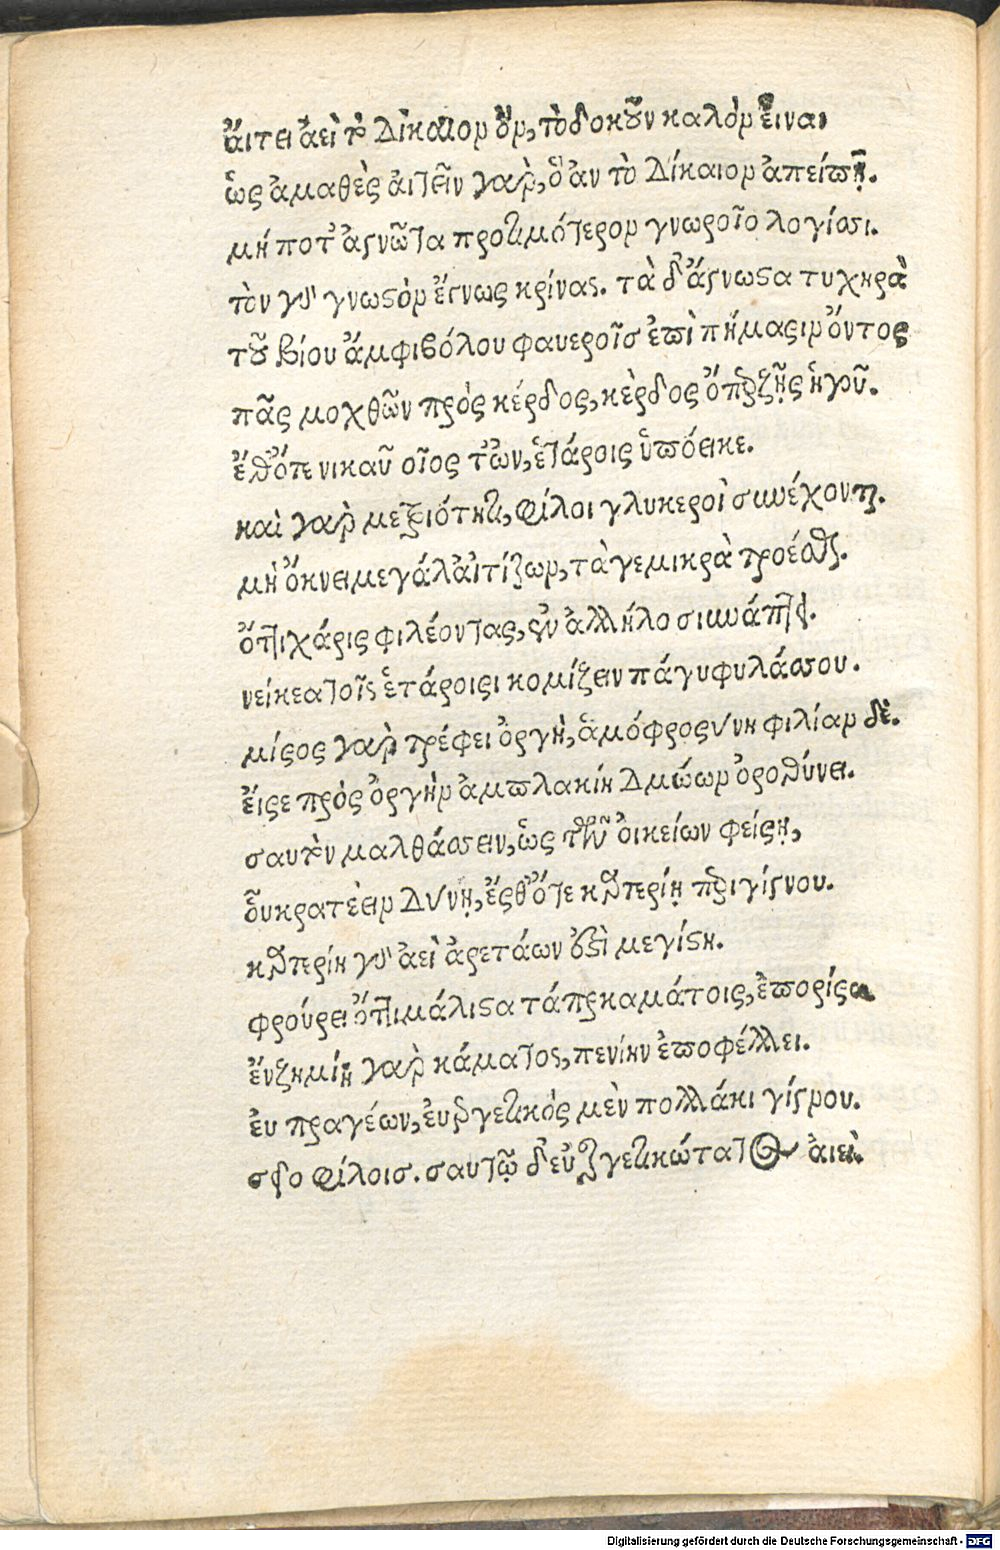 ἄιτει ἀεὶ τὸ Δίκαιον ὂν, τὸ δοκοῦν καλὸν εἶναι
ὡς ἀμαθὲς ἀιτεῖν γαρ, ὃ ἂν τὸ Δίκαιον ἀπείπῃ.
μή ποτ' ἀγνῶτα προτιμότερον γνωροῖο λογίσσι.
τὸν γὰρ γνωστὸν ἔγνως κρίνας. τὰ δ' ἄγνωστα τυχηρὰ
τοῦ βίου ἀμφιβόλου φανεροῖς ἐπὶ πήμασιν ὄντος
πᾶς μοχθῶν πρὸς κέρδος, κέρδος ὅπερ ζῇς ἡγοῦ.
ἔσθ' ὅτε νικᾶν οἷος τ' ὢν, ἑτάροις ὑπόεικε.
καὶ γὰρ μετριότητι, φίλοι γλυκεροὶ συνέχονται.
μὴ ὄκνει μεγάλ' ἀιτίζων, τὰ γε μικρὰ προέσθαι.
ὅττι χάρις φιλέοντας, ἐν ἀλλήλοσι συνάπτει.
νείκεα τοῖς ἑτάροισι κομίζειν πάγυ φυλάσσου.
μῖσος γὰρ τρέφει ὀργὴ, ὁμόφροσύνη φιλίαν δὲ.
εἴς σε πρὸς ὀργὴν ἀμπλακίη Δμώων ὀροθύνει.
σαυτὸν μαλθάσσειν, ὡς τῶν οἰκείων φείσῃ,
οὗ κρατέειν Δύνῃ, ἔσθ' ὅτε καρτερίῃ περιγίγνου.
καρτερίη γὰρ ἀεὶ ἀρετάων ἐστὶ μεγίστη.
φρούρει ὅττι μάλιστα τάπερ καμάτοις, ἐπορίσω
ἐν ζημίῃ γὰρ κάματος, πενίην ἐποφέλλει.
ἐυ πραγέων, ἐυεργετικὸς μὲν πολλάκι γίγνου.
σοῖσο φίλοις. σαυτῷ δ' εὐεργετικώτατος ἀιεὶ.
Digitalisierung gefördert durch die Deutsche Forschungsgemeinschaft - DFG